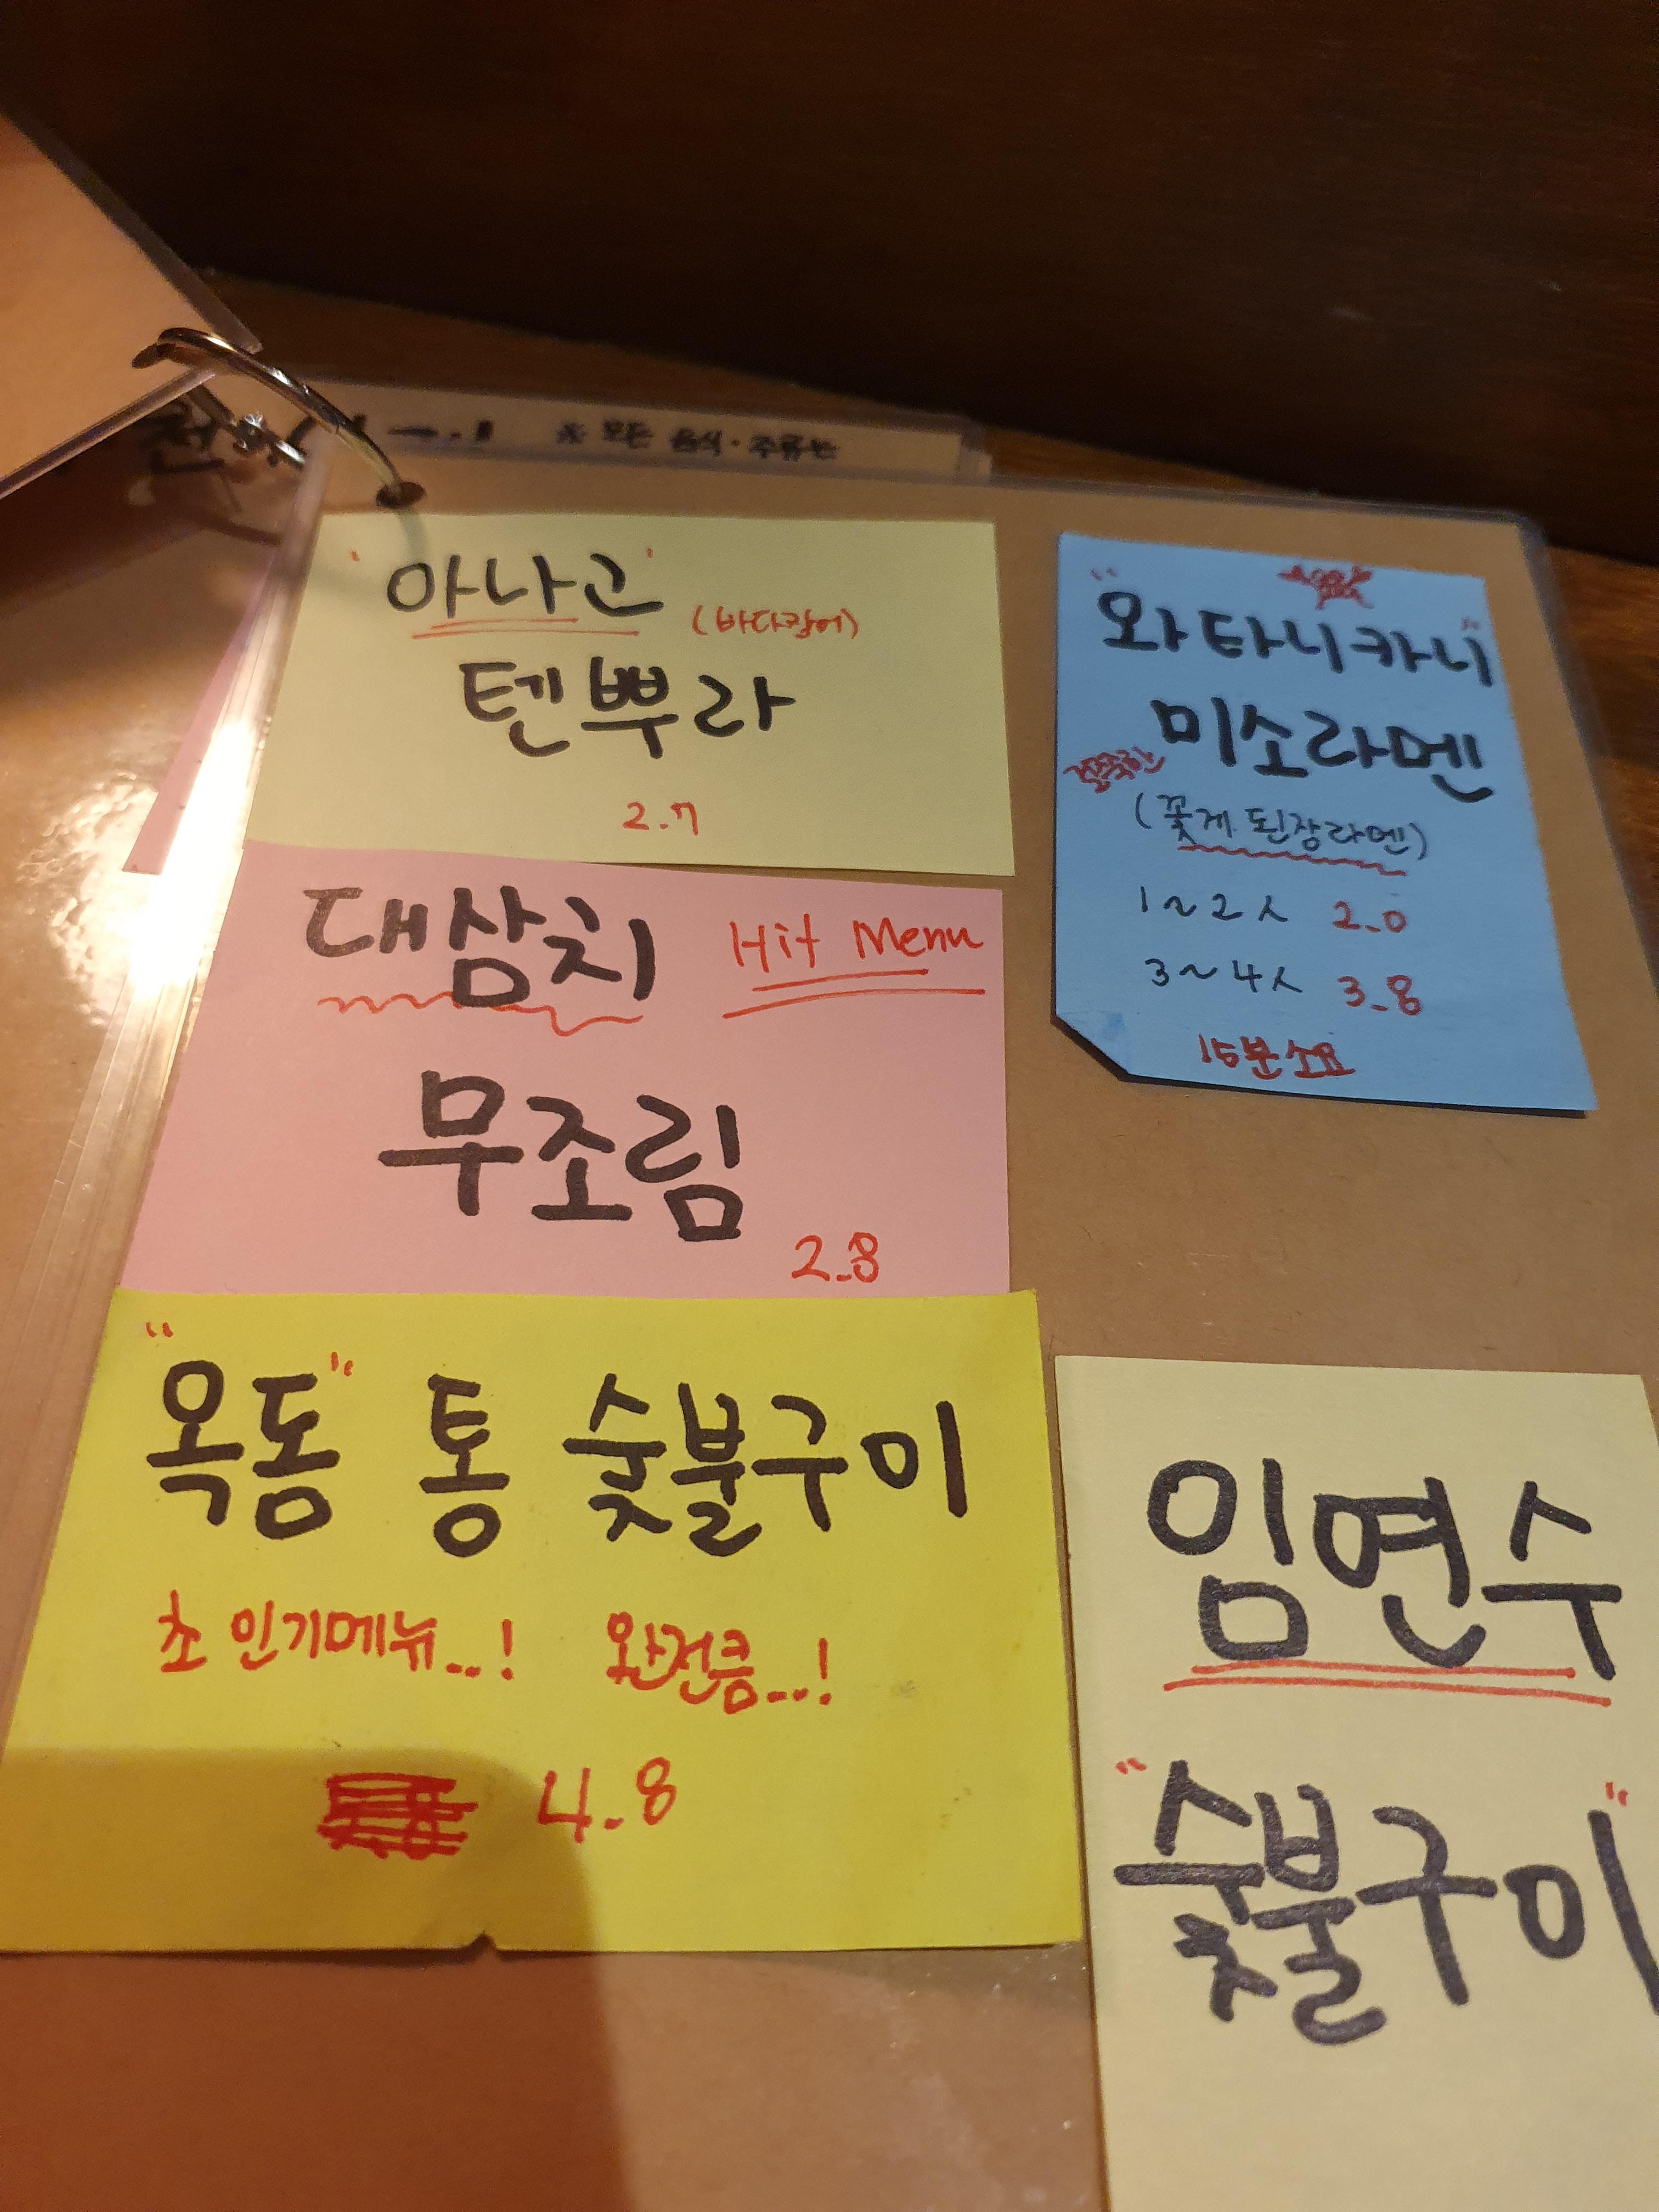 ※ 모든 음식·주류는
'아나고' (바다장어)
텐뿌라
2.7
대삼치 Hit Menu
무조림
2.8
"옥돔" 통 숯불구이
초 인기메뉴...! 완전큼...!
4.8
"와타니카니"
미소라멘
(꽃게 된장라멘)
1~2人 2.0
3~4人 3.8
15분소요
임연수
"숯불구이"